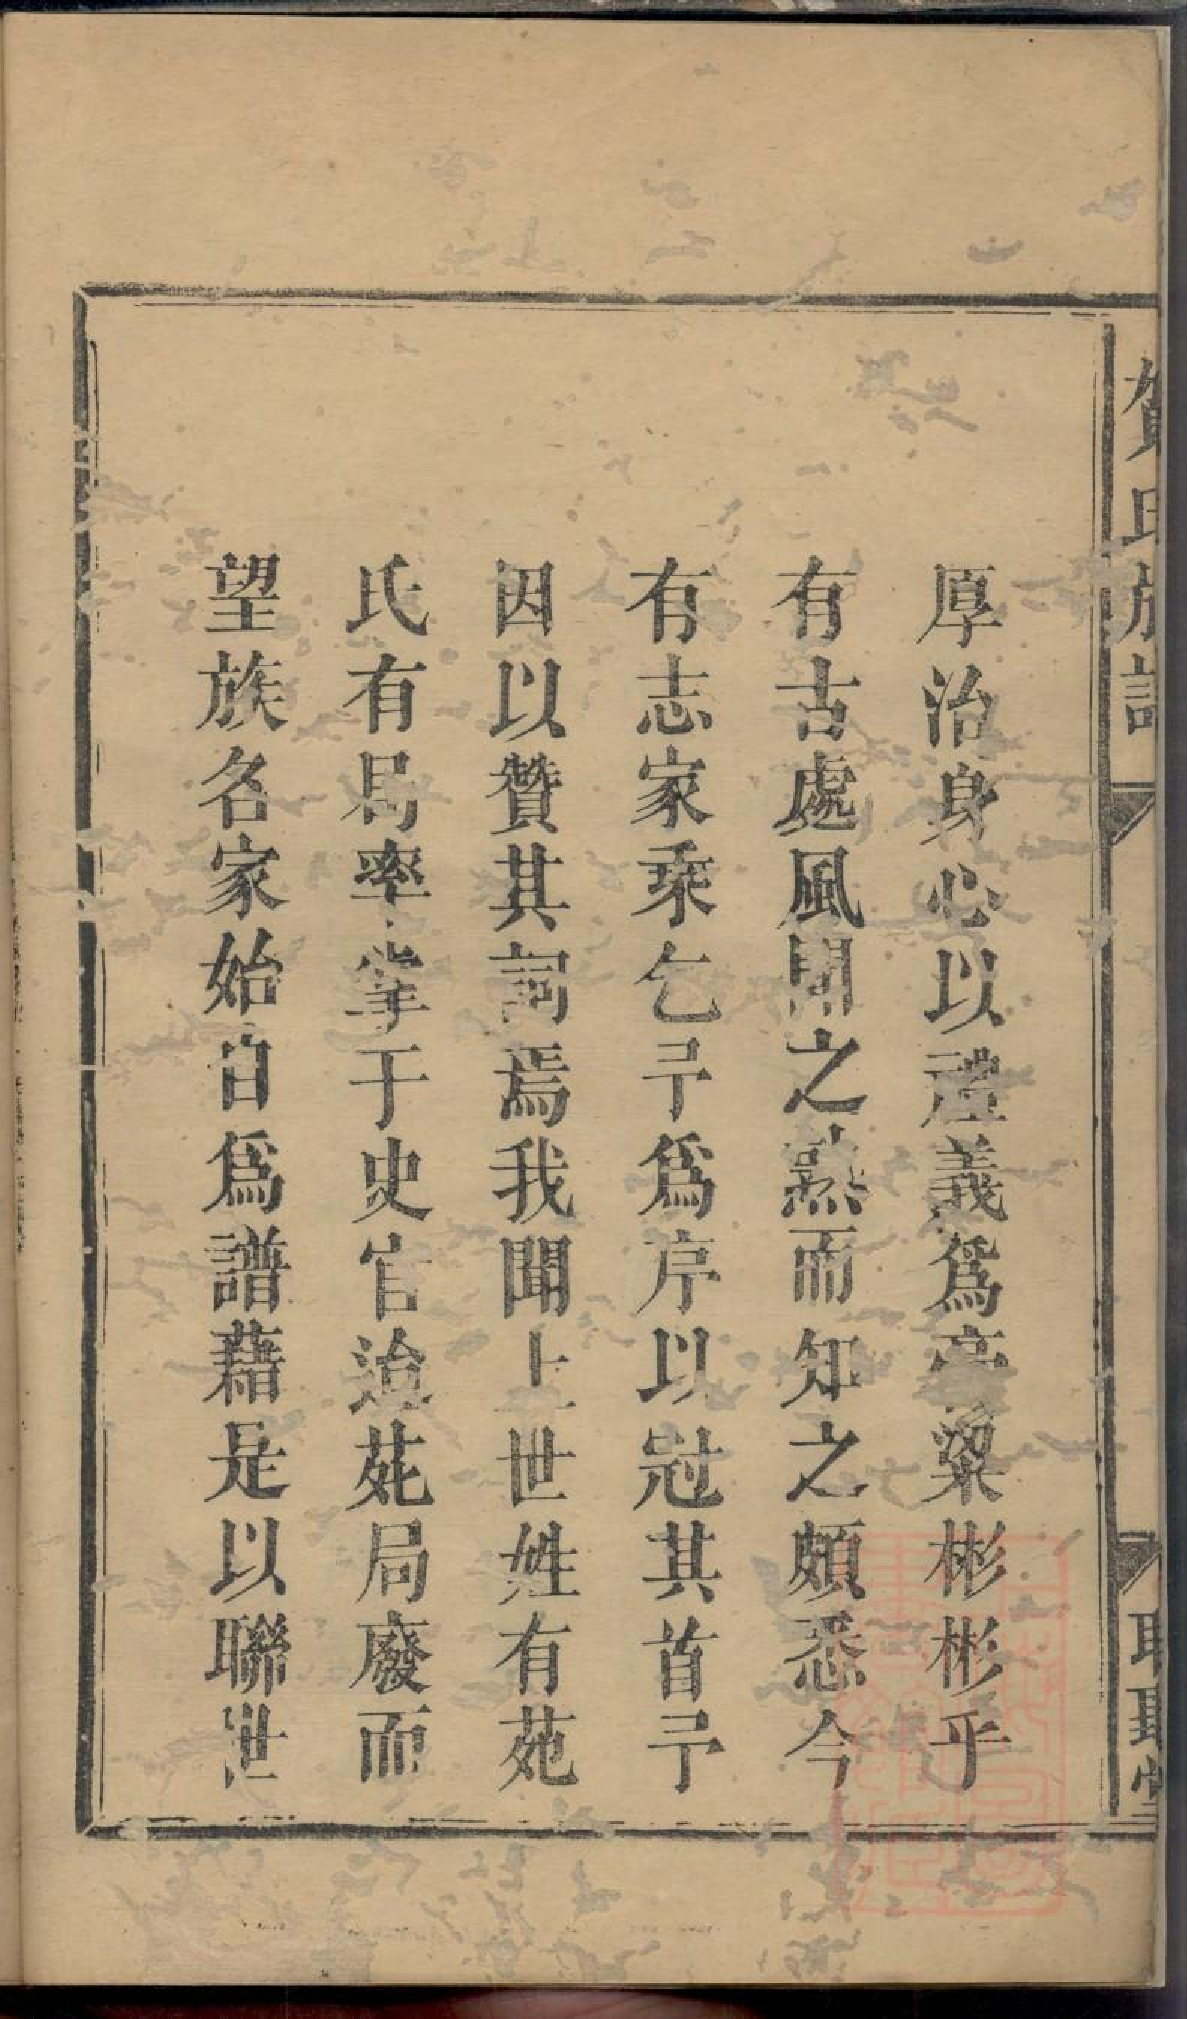 賀氏族譜
耴耴堂
厚治身心以禮義爲膏粱彬彬乎
有古處風聞之熟而知之頗悉今
有志家乘乞予爲序以冠其首予
因以贊其詞焉我聞上世姓有苑
氏有局率掌于史官治苑局廢而
望族名家始自爲譜藉是以聯世